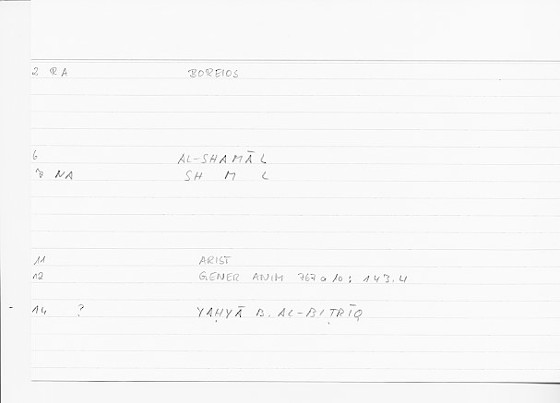 2 RA BOREIOS
6 AL-SHAMĀL
7 NA SH M L
11 ARIST
12 GENER ANIM 767a10; 143.4
14 ? YAḤYĀ B. AL-BIṬRĪQ